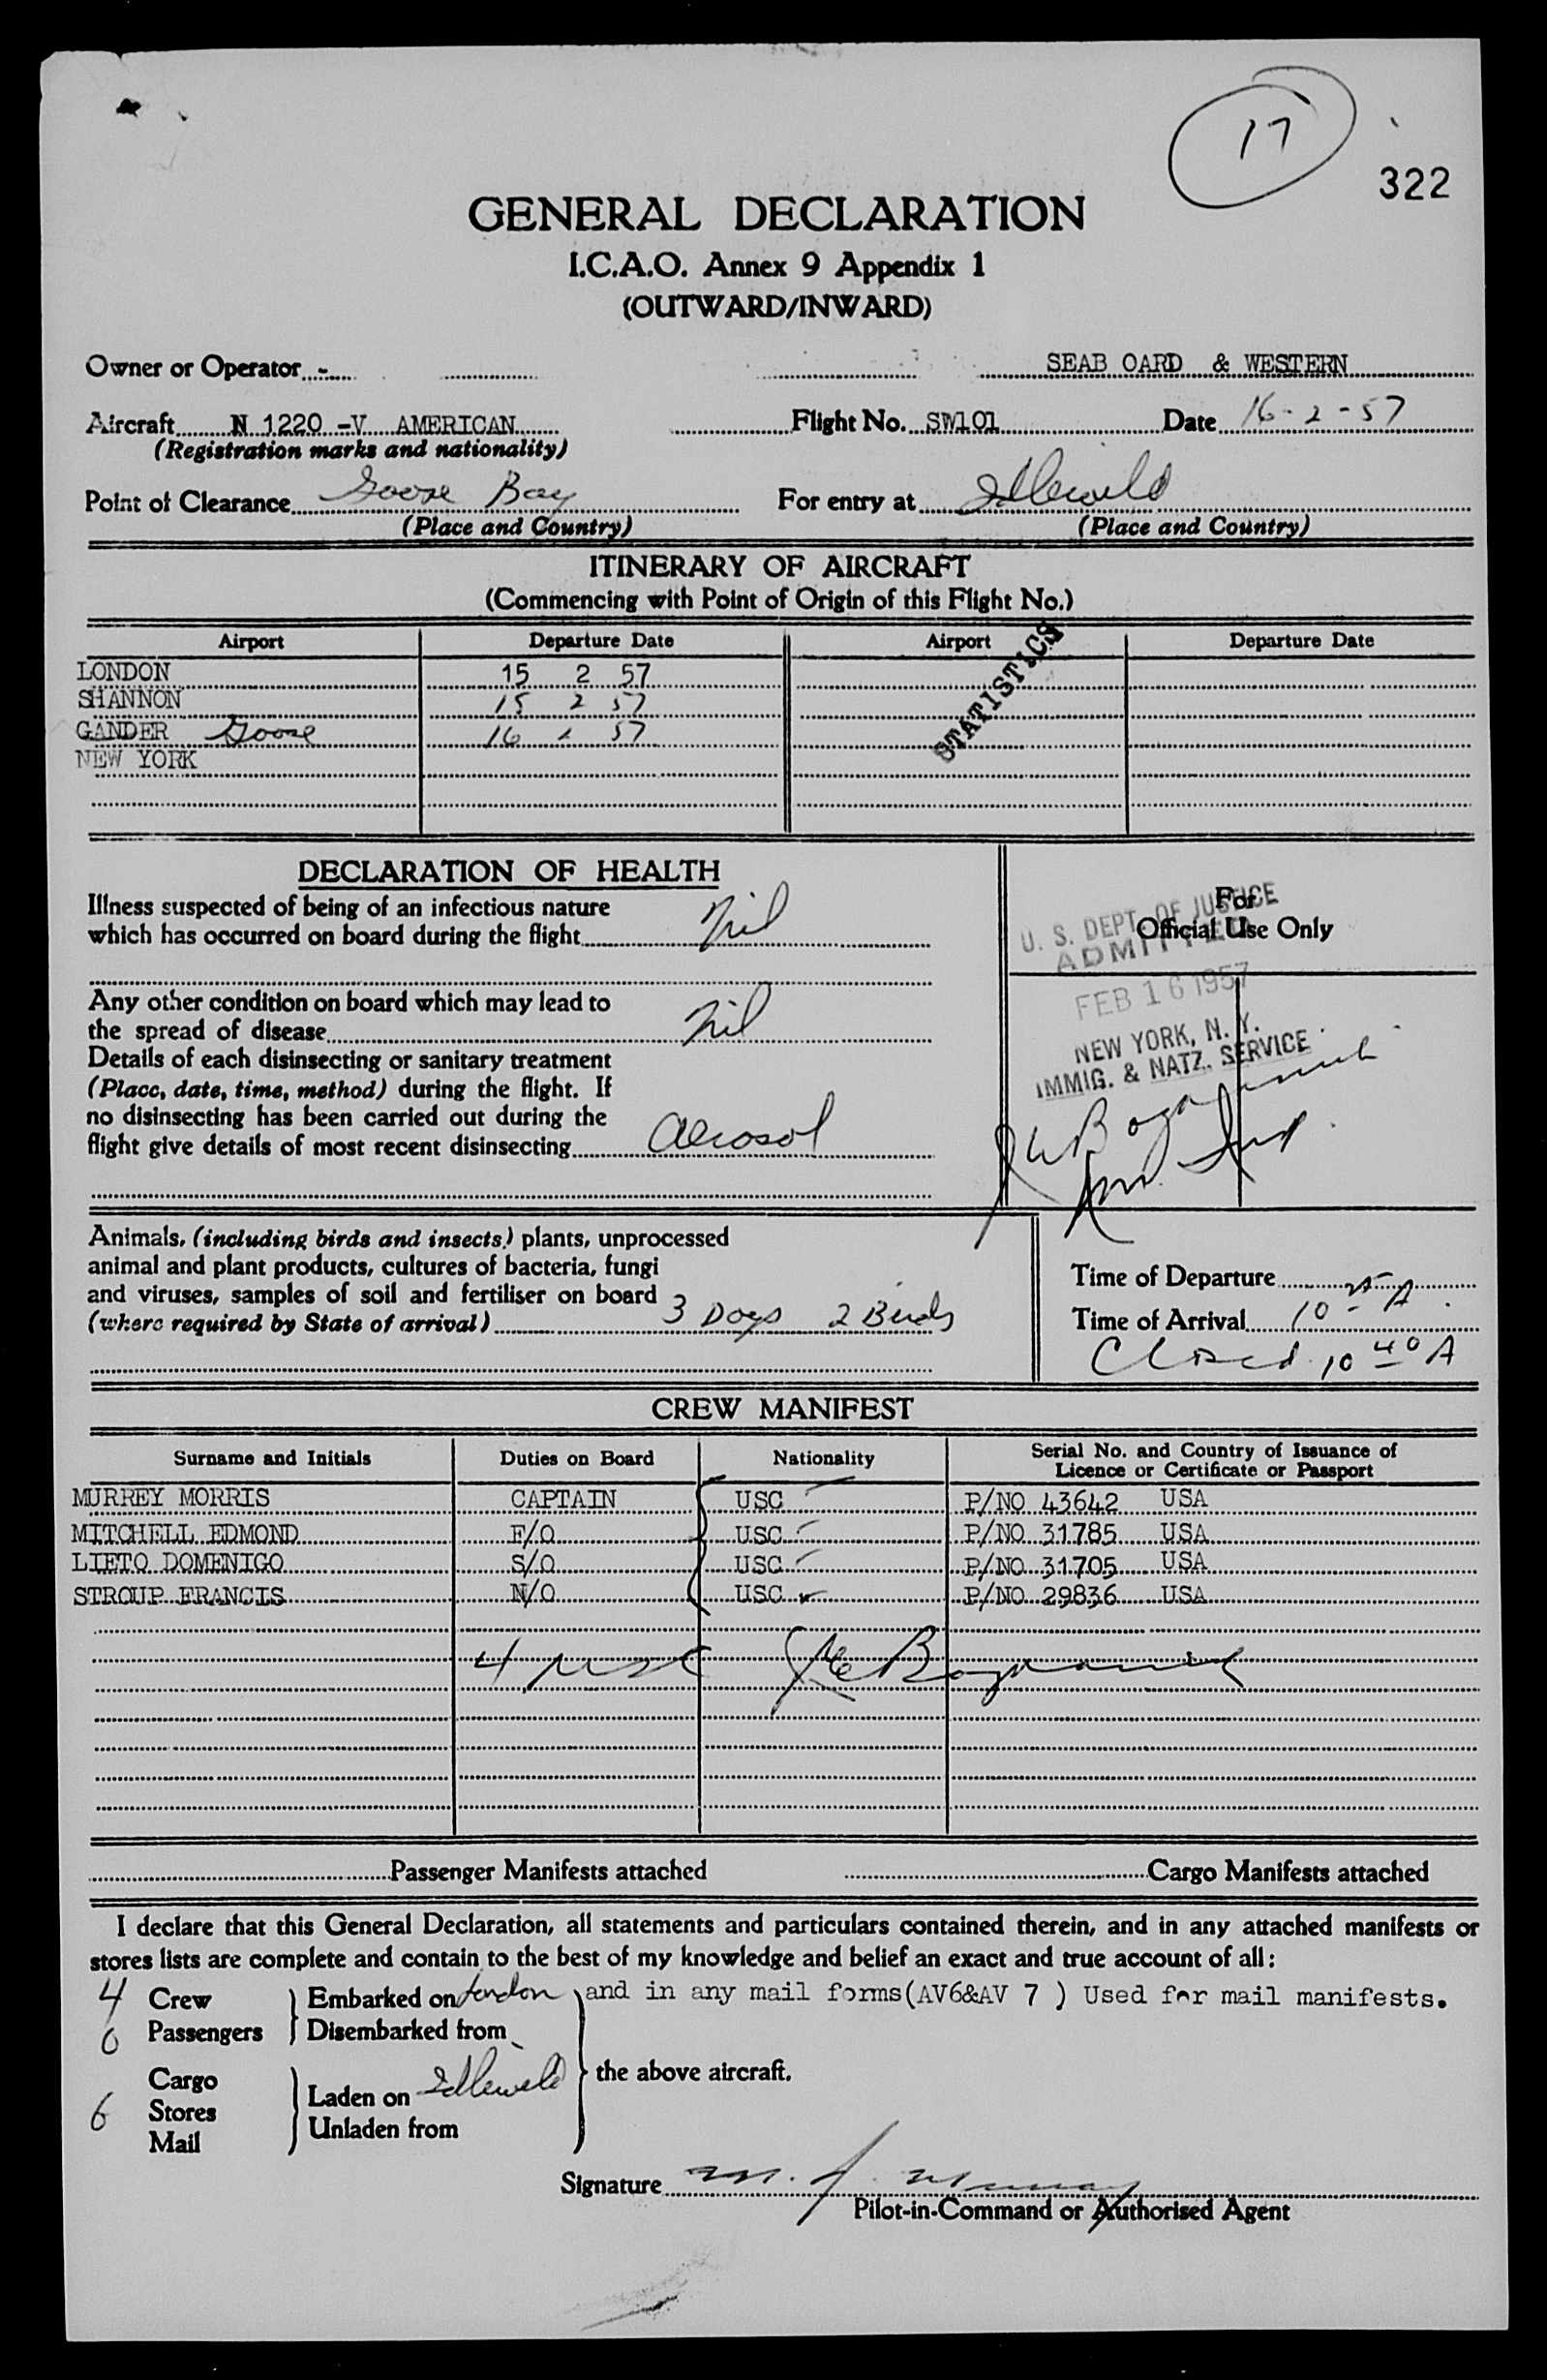 17
322
GENERAL DECLARATION
I.C.A.O. Annex 9 Appendix 1
(OUTWARD/INWARD)
Owner or Operator - SEAB OARD & WESTERN
Aircraft N 1220 -V AMERICAN Flight No. SW101 Date 16-2-57
(Registration marks and nationality)
Point of Clearance Goose Bay For entry at Idlewild
(Place and Country) (Place and Country)
ITINERARY OF AIRCRAFT
(Commencing with Point of Origin of this Flight No.)
Airport Departure Date Airport Departure Date
STATISTICS
LONDON 15 2 57
SHANNON 15 2 57
GANDER Goose 16 2 57
NEW YORK
DECLARATION OF HEALTH
Illness suspected of being of an infectious nature
which has occurred on board during the flight Nil
Any other condition on board which may lead to
the spread of disease Nil
Details of each disinsecting or sanitary treatment
(Place, date, time, method) during the flight. If
no disinsecting has been carried out during the
flight give details of most recent disinsecting Aerosol
For
Official Use Only
U. S. DEPT. OF JUSTICE
ADMITTED
FEB 16 1957
NEW YORK, N. Y.
IMMIG. & NATZ. SERVICE
Animals, (including birds and insects) plants, unprocessed
animal and plant products, cultures of bacteria, fungi
and viruses, samples of soil and fertiliser on board
(where required by State of arrival) 3 Dogs 2 Birds
Time of Departure
Time of Arrival 10 A
Closed 10 40 A
CREW MANIFEST
Surname and Initials Duties on Board Nationality Serial No. and Country of Issuance of
Licence or Certificate or Passport
MURREY MORRIS CAPTAIN USC P/NO 43642 USA
MITCHELL EDMOND F/O USC P/NO 31785 USA
LIETO DOMENIGO S/O USC P/NO 31705 USA
STROUP FRANCIS N/O USC P/NO 29836 USA
4 USC
Passenger Manifests attached Cargo Manifests attached
I declare that this General Declaration, all statements and particulars contained therein, and in any attached manifests or
stores lists are complete and contain to the best of my knowledge and belief an exact and true account of all:
4 Crew Embarked on London and in any mail forms(AV6&AV 7 ) Used for mail manifests.
0 Passengers Disembarked from
Cargo
Laden on Idlewild the above aircraft.
6 Stores
Unladen from
Mail
Signature M. J. Murray
Pilot-in-Command or Authorised Agent